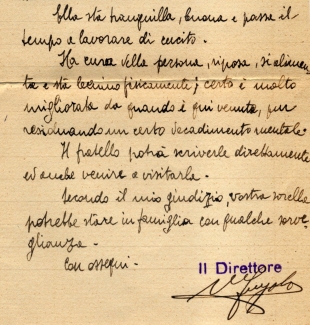 Ella sta tranquilla, buona e passa il
tempo a lavorare di cucito.
Ha cura della persona, riposa, si alimen
ta e sta benino fisicamente; certo è molto
migliorata da quando è qui venuta, pur
residuando un certo decadimento mentale.
Il fratello potrà scriverle direttamente
ed anche venire a visitarla.
Secondo il mio giudizio, vostra sorella
potrebbe stare in famiglia con qualche sorve-
glianza.
Con ossequi.
Il Direttore